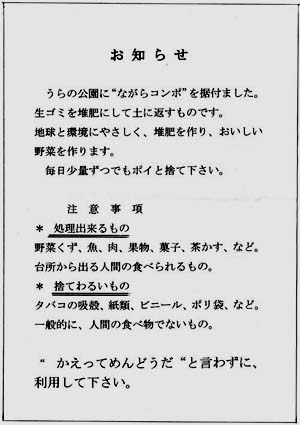 お知らせ
うらの公園に“ながらコンポ”を据付ました。
生ゴミを堆肥にして土に返すものです。
地球と環境にやさしく、堆肥を作り、おいしい
野菜を作ります。
毎日少量ずつでもポイと捨て下さい。
注意事項
＊ 処理出来るもの
野菜くず、魚、肉、果物、菓子、茶かす、など。
台所から出る人間の食べられるもの。
＊ 捨てわるいもの
タバコの吸殻、紙類、ビニール、ポリ袋、など。
一般的に、人間の食べ物でないもの。
“ かえってめんどうだ “と言わずに、
利用して下さい。